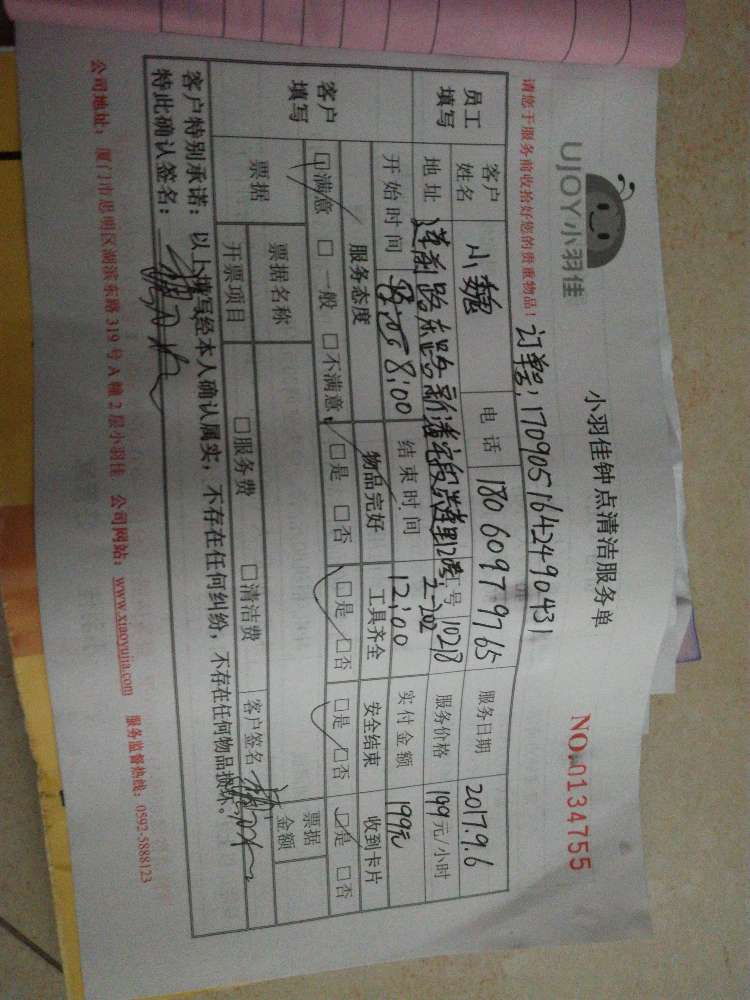 UJOY小羽佳
小羽佳钟点清洁服务单
NO.0134755
请您于服务前收拾好您的贵重物品！
订单号：1709051642490431
员工填写
客户姓名 小魏 电话 18060979765 服务日期 2017.9.6
地址 莲前路东路新潘宅段 2-202 工号 10218 服务价格 199元/小时
开始时间 8:00 结束时间 12:00 实付金额 199元
客户填写
服务态度 物品完好 工具齐全 安全结束 收到卡片
☑满意 □一般 □不满意 □是 □否 □是 □否 □是 □否 □是 □否
票据 票据名称 票据金额
开票项目 □服务费 □清洁费 客户签名
客户特别承诺：以上填写经本人确认属实，不存在任何纠纷，不存在任何物品损坏。
特此确认签名：
公司地址：厦门市思明区湖滨东路319号A幢2层小羽佳 公司网站：www.xiaoyujia.com 服务监督热线：0592-5888123